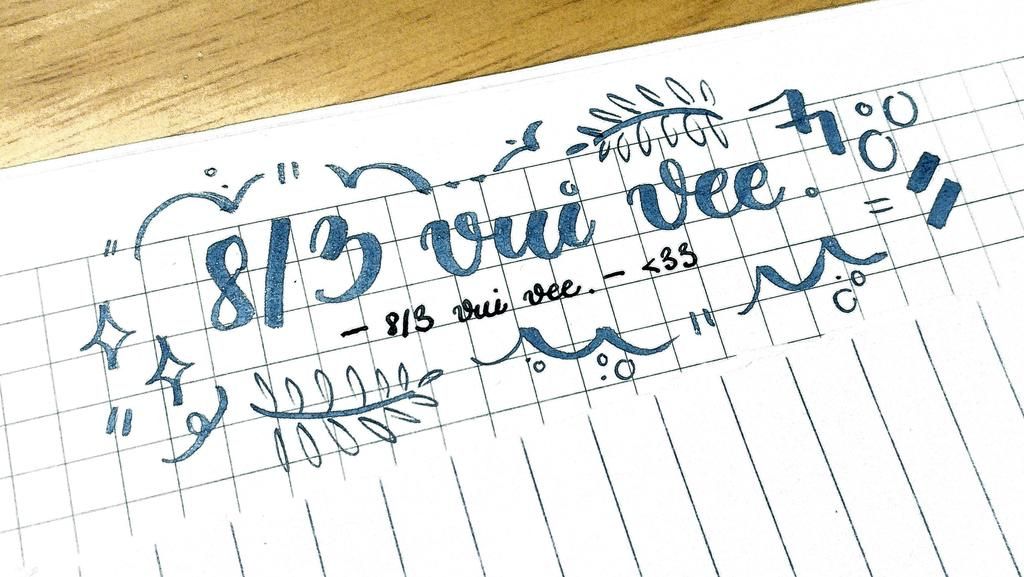 8/3 vui vee.
- 8/3 vui vee. - <33